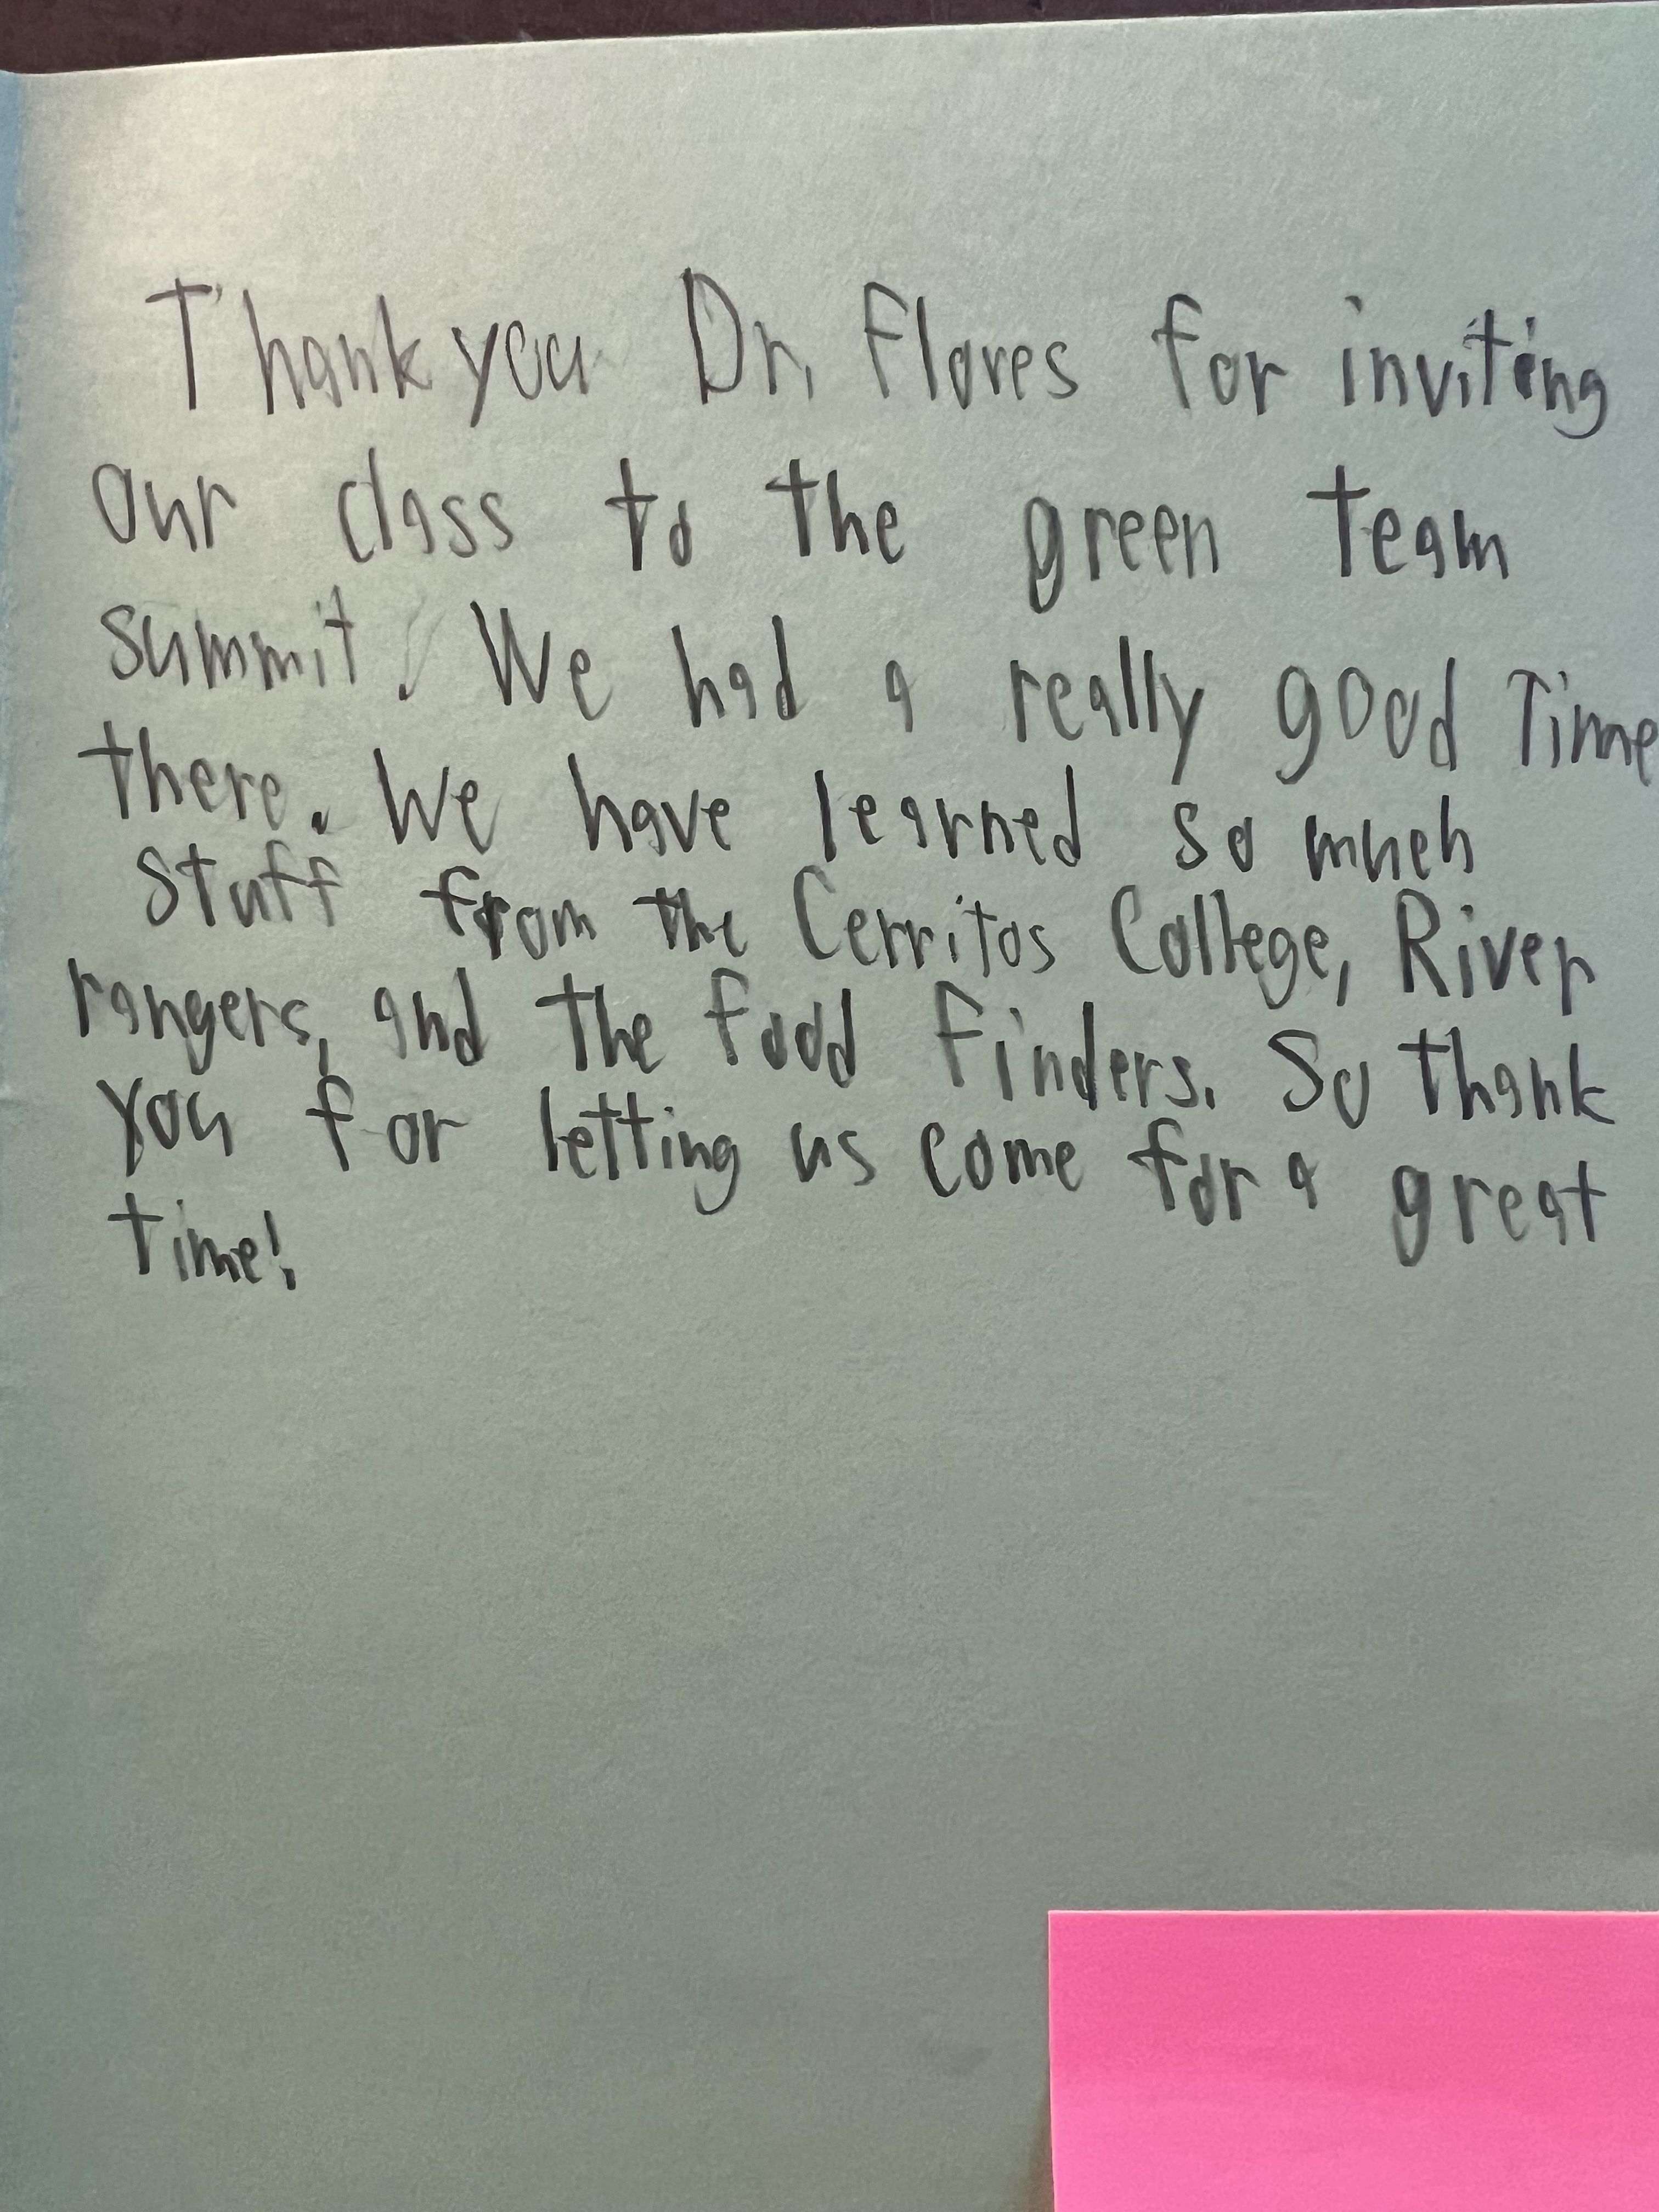 Thank you Dr. Flores for inviting
our class to the green team
summit. We had a really good Time
there. We have learned so much
stuff from the Cerritos College, River
rangers, and the food finders. So thank
you for letting us come for a great
time!